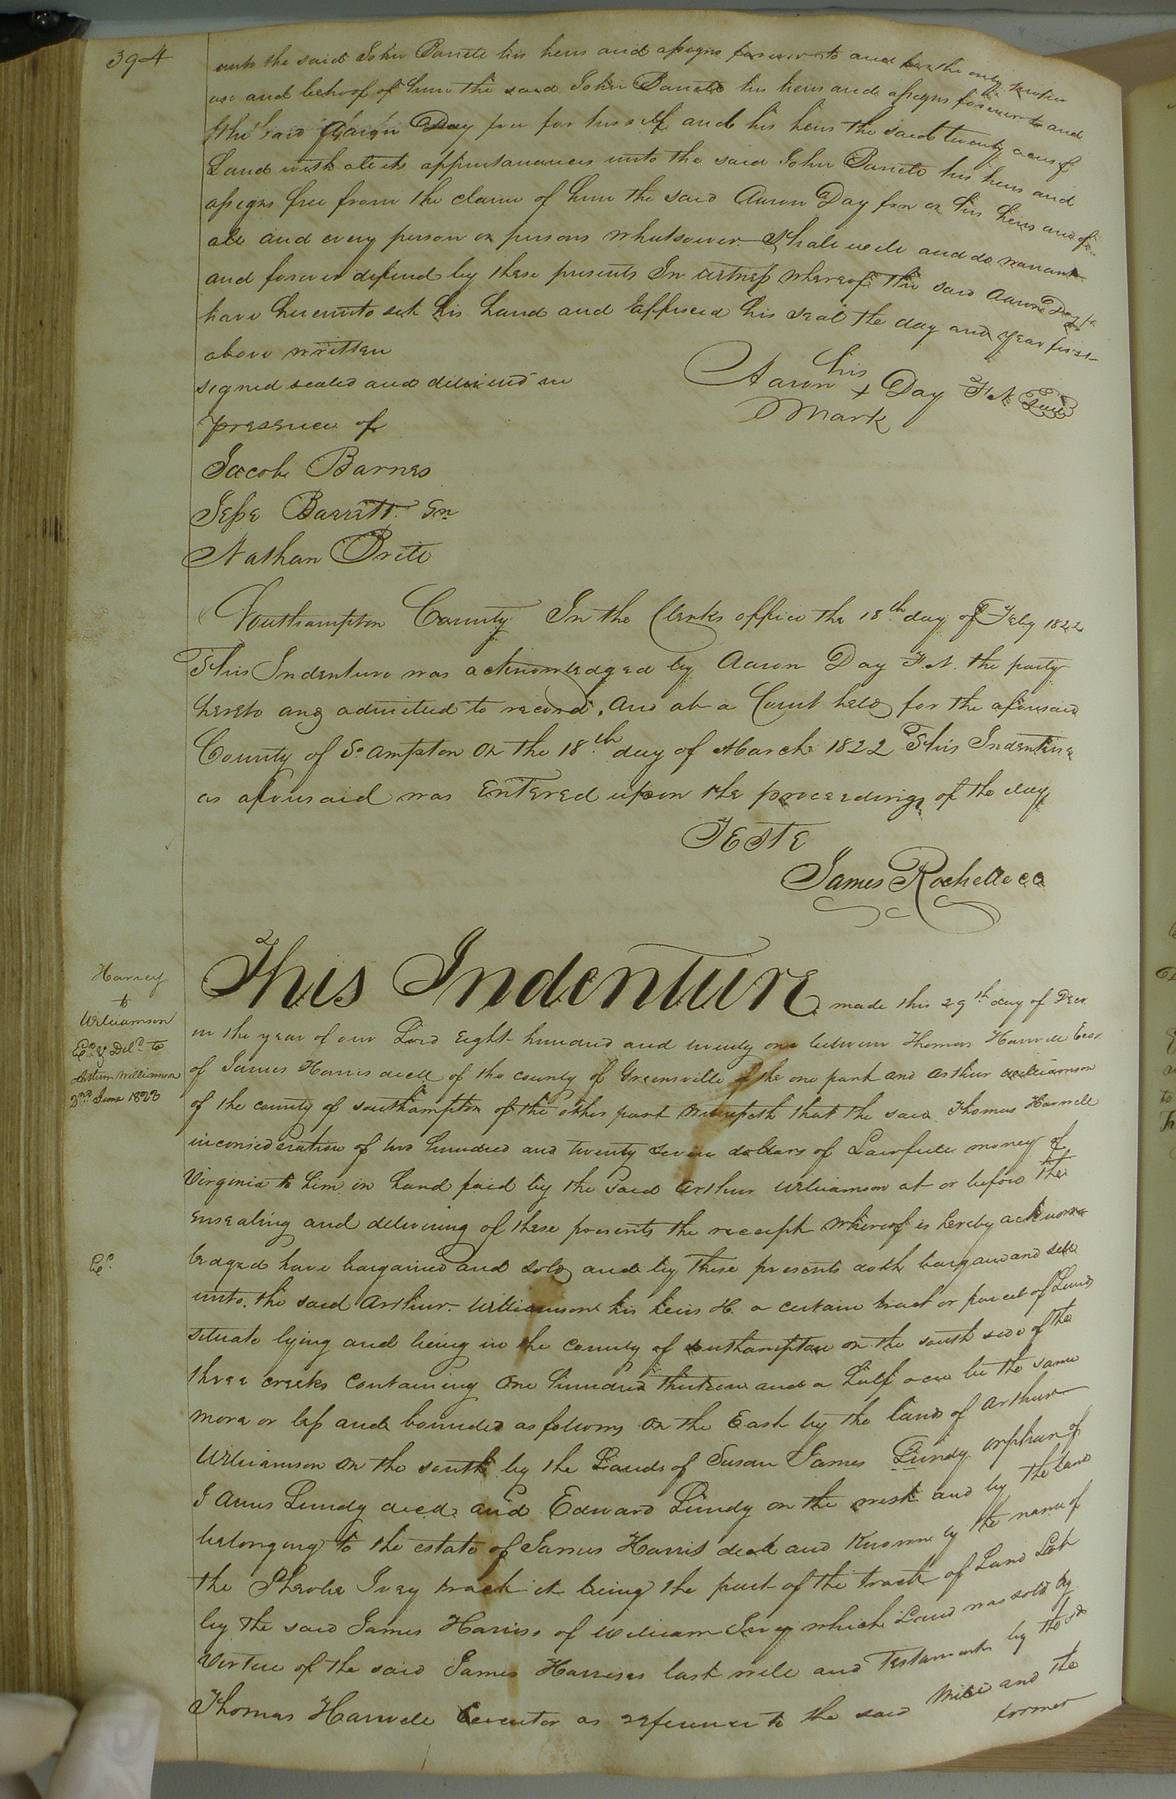 394
unto the said John Barrett his heirs and assigns forever to and for the only proper
use and behoof of him the said John Barrett his heirs and assigns forever to and
the said Aaron Day free for himself and his heirs the said twenty acres of
Land with all its appurtanances unto the said John Barrett his heirs and
assigns free from the claim of him the said Aaron Day fn or his heirs and of
all and every person or persons whatsoever shall will and do warrant
and forever defend by these presents In witness whereof the said Aaron Day fn
have hereunto set his hand and affixed his seal the day and year first
above written
signed sealed and delivered in
presence of
Aaron his + Day F.N. Seal
Mark
Jacob Barnes
Jesse Barrett Sn
Nathan Brite
Southampton County In the Clerks office the 18th day of Feby 1822
This Indenture was acknowledged by Aaron Day F.N. the party
hereto and admitted to record. And at a Court held for the aforesaid
County of So ampton on the 18th day of March 1822 This Indenture
as aforesaid was Entered upon the proceedings of the day
TESTE
James Rochelle cc
Harvey
to
Williamson
Ex.d & Deld to
Arthur Williamson
2nd June 1823
This Indenture made this 29th day of Decr
in the year of our Lord Eight hundred and twenty one between Thomas Harwell Exor
of James Harris decd of the county of Greensville of the one part and Arthur Williamson
of the county of Southampton of the other part Witnesseth that the said Thomas Harwell
inconsideration of two hundred and twenty seven dollars of Lawfull money of
Virginia to him in hand paid by the said Arthur Williamson at or before the
ensealing and delivering of these presents the receipt whereof is hereby acknow
ledged have bargained and sold and by these presents doth bargain and sell
unto the said Arthur Williamson his heirs &c a certain tract or parcel of Land
situate lying and being in the county of Southampton on the south side of the
three creeks Containing One hundred thirteen and a half acre be the same
more or less and bounded as follows On the East by the land of Arthur
Williamson on the south by the Lands of Susan James Lundy orphan of
James Lundy decd and Edward Lundy on the west and by the land
belonging to the estate of James Harris decd and known by the name of
the Pheobe Ivey tract it being the part of the tract of Land
by the said James Harriss of William Ivey which Land was sold by
Virtue of the said James Harrises last will and Testament by the sd
Thomas Harwell Executor as reference to the said Will and the
former